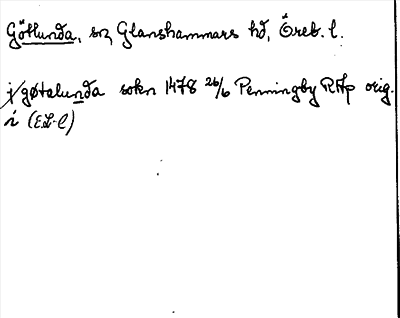 Götlunda, sn, Glanshammars hd, Öreb. l.
j gøtalunda sokn 1478 26/6 Penningby RAp orig.
i (EL-C)